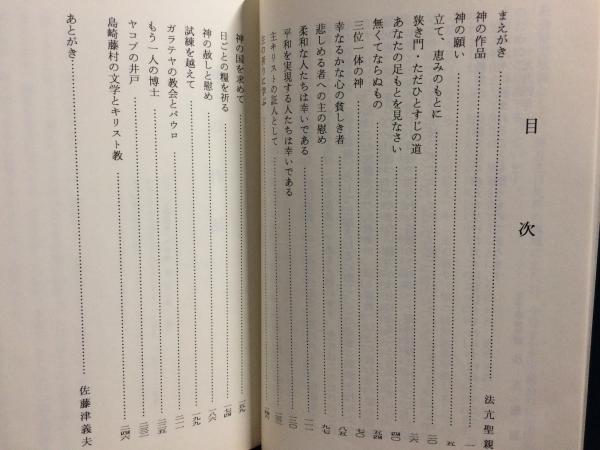 目次
まえがき……………法亢聖親
神の作品……………一
神の願い……………五
立て、恵みのもとに……………二〇
狭き門・ただひとすじの道……………二六
あなたの足もとを見なさい……………四〇
無くてならぬもの……………五四
三位一体の神……………
幸なるかな心の貧しき者……………八五
悲しめる者への主の慰め……………九七
柔和な人たちは幸いである……………一一一
平和を実現する人たちは幸いである……………一二〇
主キリストの証人として……………
主の祈りに学ぶ……………
神の国を求めて……………一五九
日ごとの糧を祈る……………一七四
神の赦しと慰め……………一八六
試練を越えて……………一九九
ガラテヤの教会とパウロ……………二一一
もう一人の博士……………
ヤコブの井戸……………
島崎藤村の文学とキリスト教……………二四六
あとがき……………佐藤津義夫